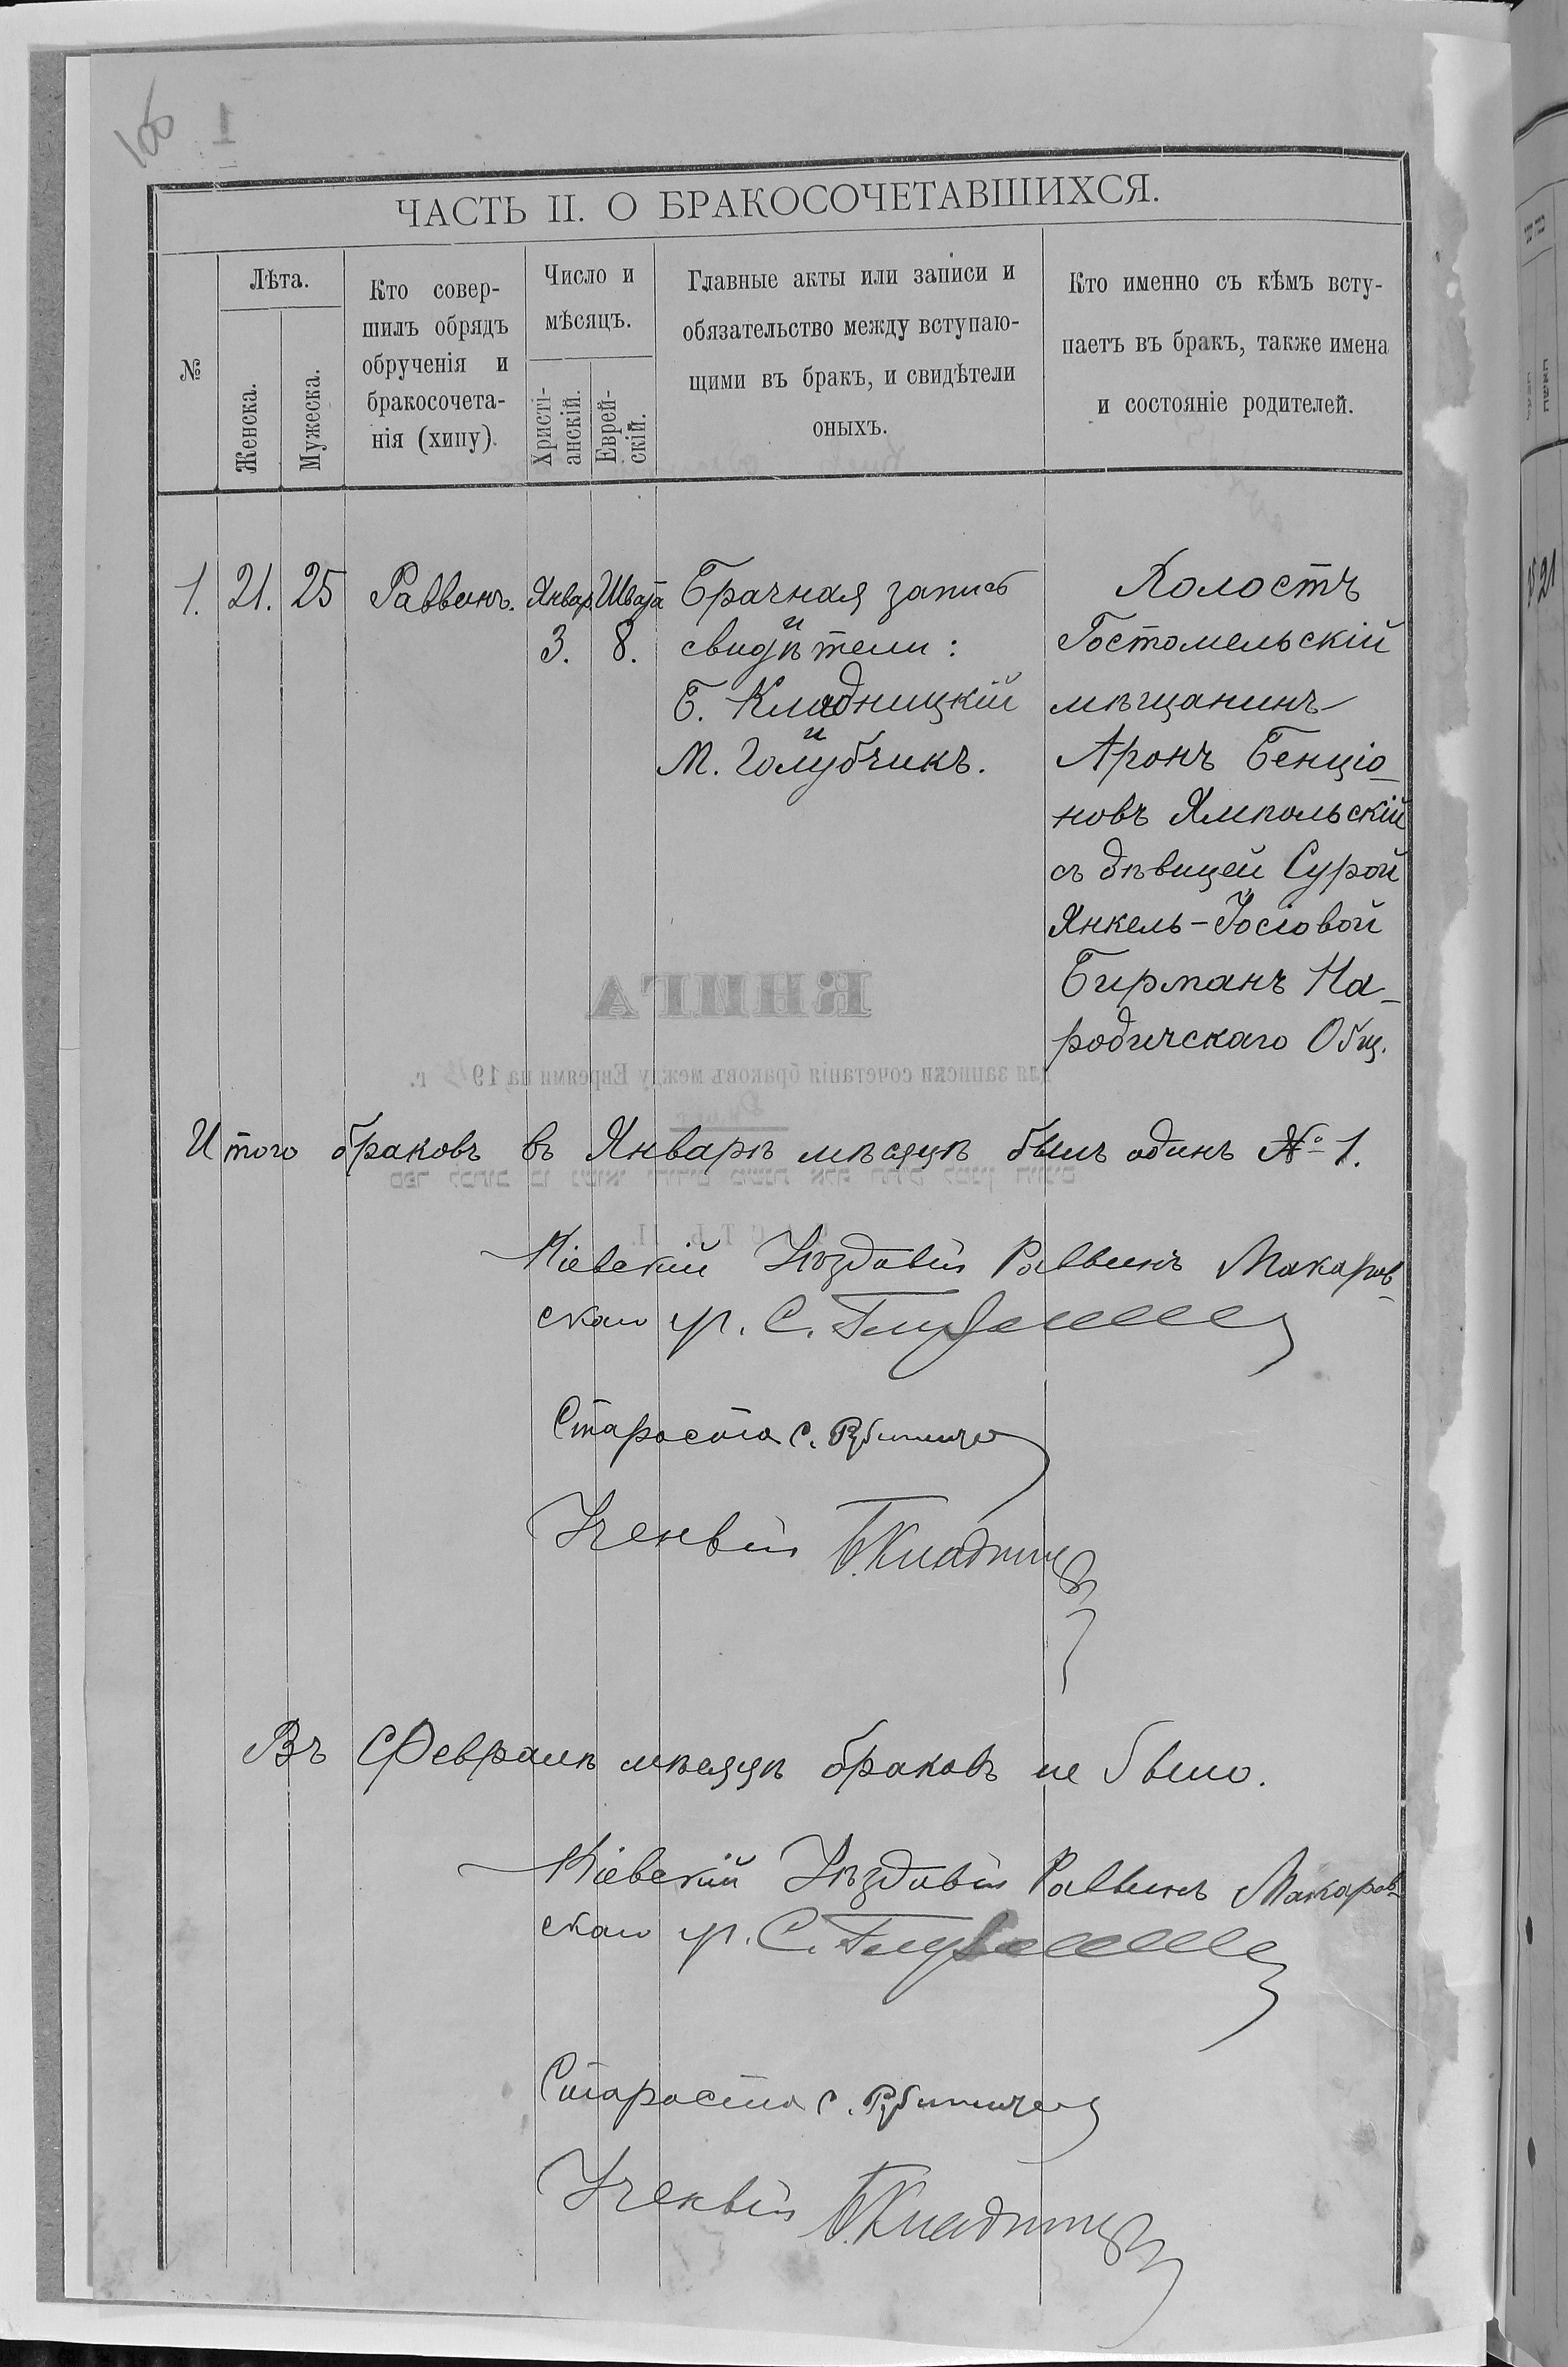 106 1
ЧАСТЬ II. О БРАКОСОЧЕТАВШИХСЯ.
№
Лѣта.
Женска.
Мужеска.
Кто совер-
шилъ обрядъ
обрученія и
бракосочета-
нія (хипу).
Число и
мѣсяцъ.
Христі-
анскій.
Еврей-
скій.
Главные акты или записи и
обязательство между вступаю-
щими въ бракъ, и свидѣтели
оныхъ.
Кто именно съ кѣмъ всту-
паетъ въ бракъ, также имена
и состояніе родителей.
1.
21.
25
Раввинъ.
Январ
3.
Швата
8.
Брачная запись
и
свидѣтели:
Б. Кладницкій
и
М. Голубчикъ.
Холостъ
Гостомельскій
мѣщанинъ
Аронъ Бенціо-
новъ Ямпольскій
съ дѣвицей Сурой
Янкель-Іосіовой
Бирманъ На-
родичскаго Общ.
КНИГА
для записки сочетанія браковъ между Евреями на 19 г.
Итого браковъ въ Январѣ мѣсяцѣ былъ одинъ № 1.
Кіевскій Уѣздовый Раввинъ Макаров-
скаго ур. С.
Староста С.
Ученый Б. Кладниц
Въ Февралѣ мѣсяцѣ браковъ не было.
Кіевскій Уѣздовый Раввинъ Макаров-
скаго ур. С.
Староста С.
Ученый Б. Кладниц